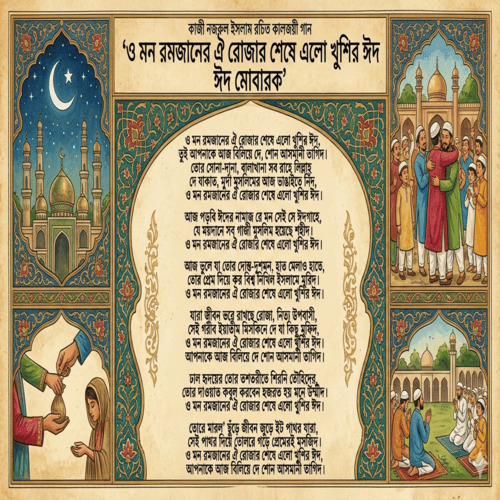 কাজী নজরুল ইসলাম রচিত কালজয়ী গান
‘ও মন রমজানের ঐ রোজার শেষে এলো খুশির ঈদ
ঈদ মোবারক’
ও মন রমজানের ঐ রোজার শেষে এলো খুশির ঈদ,
তুই আপনাকে আজ বিলিয়ে দে, শোন আসমানী তাগিদ।
তোর সোনা-দানা, বালাখানা সব রাহে লিল্লাহ
দে যাকাত, মুর্দা মুসলিমের আজ ভাঙাইতে নিঁদ,
ও মন রমজানের ঐ রোজার শেষে এলো খুশির ঈদ।
আজ পড়বি ঈদের নামাজ রে মন সেই সে ঈদগাহে,
যে ময়দানে সব গাজী মুসলিম হয়েছে শহীদ।
ও মন রমজানের ঐ রোজার শেষে এলো খুশির ঈদ।
আজ ভুলে যা তোর দোস্ত-দুশমন, হাত মেলাও হাতে,
তোর প্রেম দিয়ে কর বিশ্ব নিখিল ইসলামে মুরিদ।
ও মন রমজানের ঐ রোজার শেষে এলো খুশির ঈদ।
যারা জীবন ভরে রাখছে রোজা, নিত্য উপবাসী,
সেই গরীব ইয়াতীম মিসকিনে দে যা কিছু মুফিদ,
ও মন রমজানের ঐ রোজার শেষে এলো খুশির ঈদ
আপনাকে আজ বিলিয়ে দে শোন আসমানী তাগিদ।
ঢাল হৃদয়ের তোর তশতরীতে শিরনি তৌহিদের,
তোর দাওয়াত কবুল করবেন হজরত হয় মনে উম্মীদ।
ও মন রমজানের ঐ রোজার শেষে এলো খুশির ঈদ।
তোরে মারল' ছুঁড়ে জীবন জুড়ে ইট পাথর যারা,
সেই পাথর দিয়ে তোলরে গড়ে প্রেমেরই মসজিদ।
ও মন রমজানের ঐ রোজার শেষে এলো খুশির ঈদ,
আপনাকে আজ বিলিয়ে দে শোন আসমানী তাগিদ।